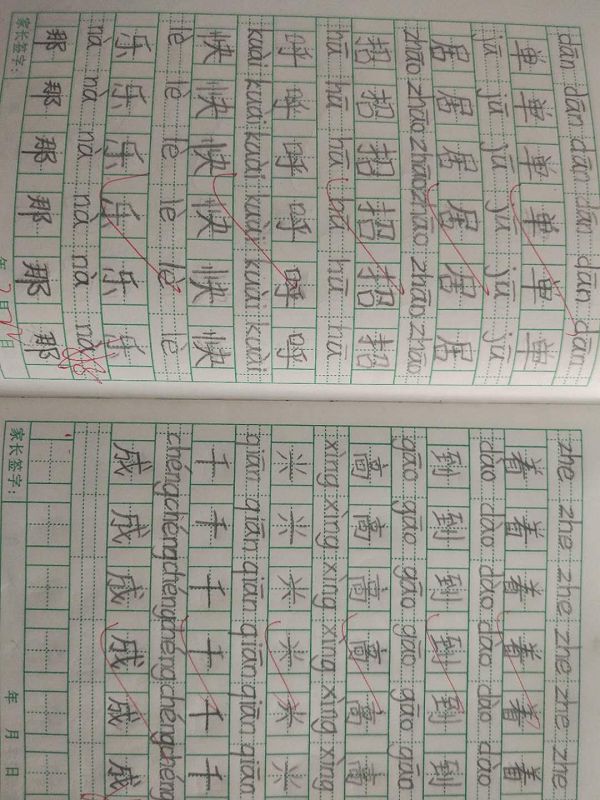 dān dān dān dān dān dān
单 单 单 单 单 单
jū jū jū jū jū jū
居 居 居 居 居 居
zhāo zhāo zhāo zhāo zhāo zhāo
招 招 招 招 招 招
hū hū hū hū hū hū
呼 呼 呼 呼 呼 呼
kuài kuài kuài kuài kuài kuài
快 快 快 快 快 快
lè lè lè lè lè lè
乐 乐 乐 乐 乐 乐
nà nà nà nà nà nà
那 那 那 那 那 那
家长签字： 年 月 日
zhe zhe zhe zhe zhe zhe
着 着 着 着 着 着
dào dào dào dào dào dào
到 到 到 到 到 到
gāo gāo gāo gāo gāo gāo
高 高 高 高 高 高
xìng xìng xìng xìng xìng xìng
兴 兴 兴 兴 兴 兴
qiān qiān qiān qiān qiān qiān
千 千 千 千 千 千
chéng chéng chéng chéng chéng chéng
成 成 成 成 成 成
家长签字： 年 月 日